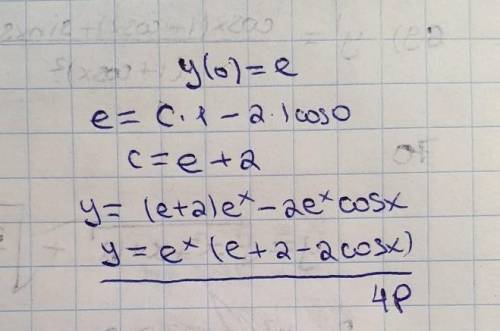 y(0) = e
e = C·1 - 2·1cos0
c = e + 2
y = (e+2)eˣ - 2eˣcosx
y = eˣ(e+2-2cosx)
4P